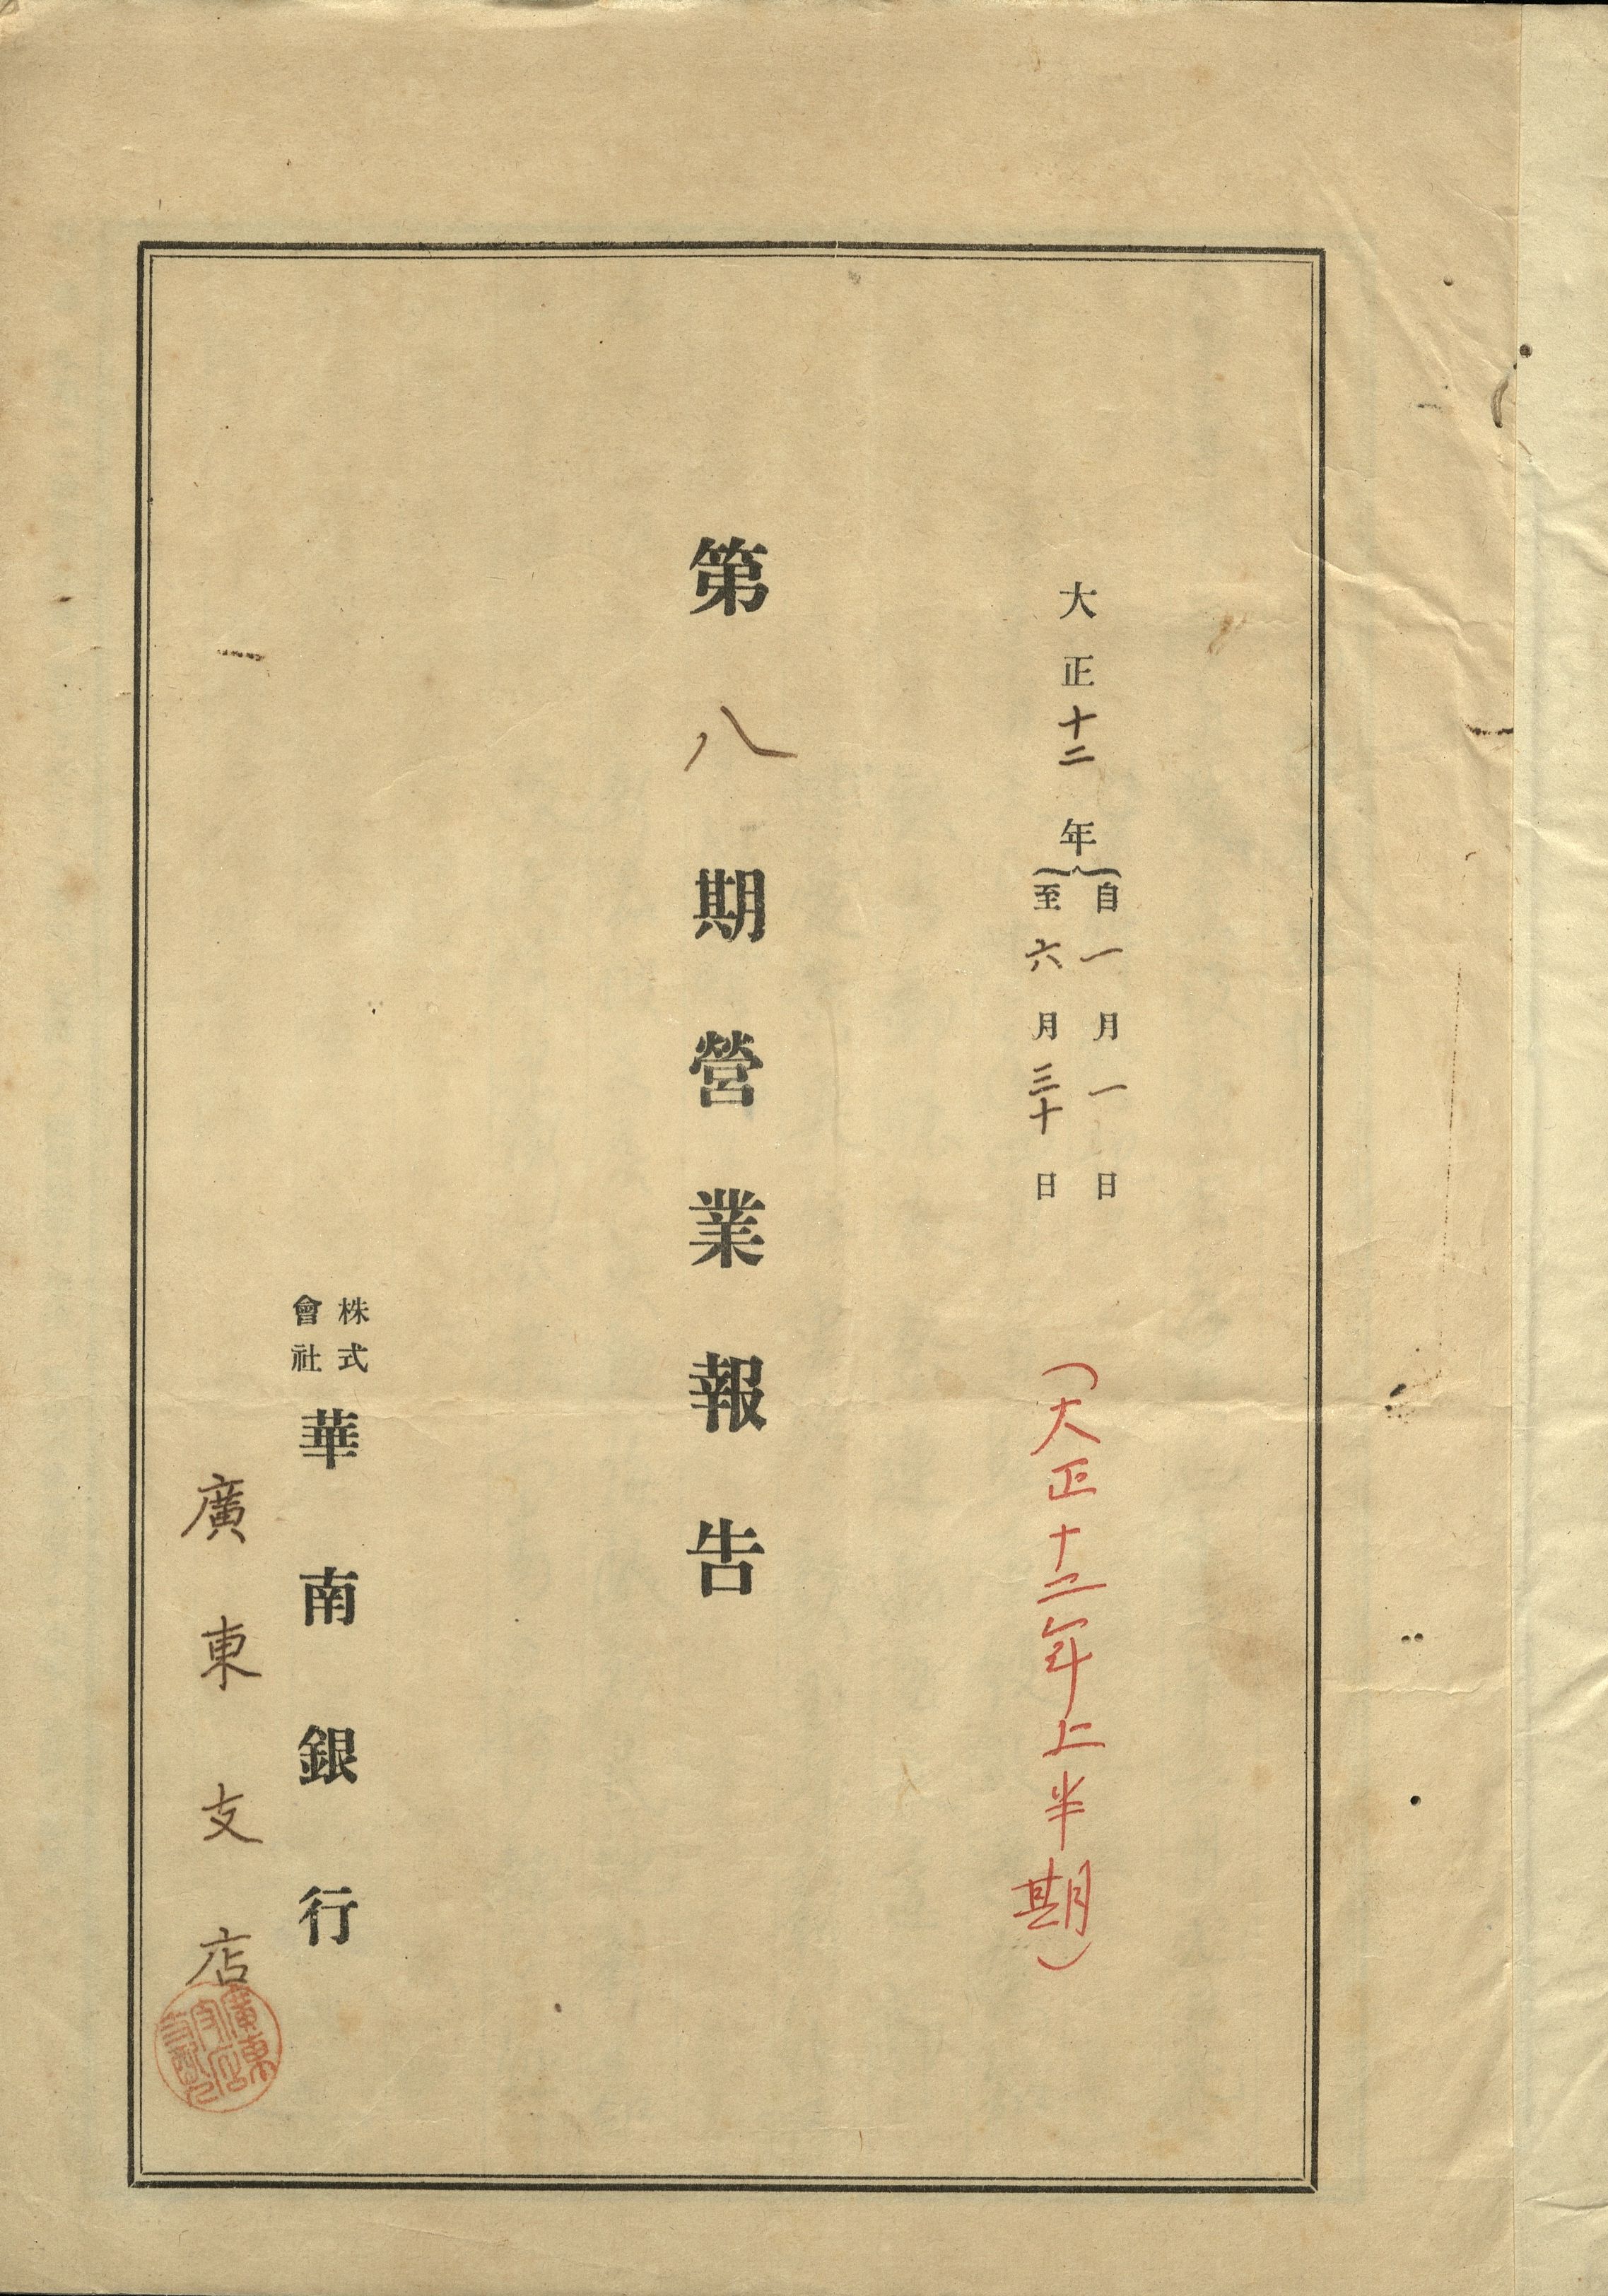 大正十二年
自一月一日
至六月三十日
(大正十二年上半期)
第八期營業報告
株式
會社
華南銀行
廣東支店
廣東
支店